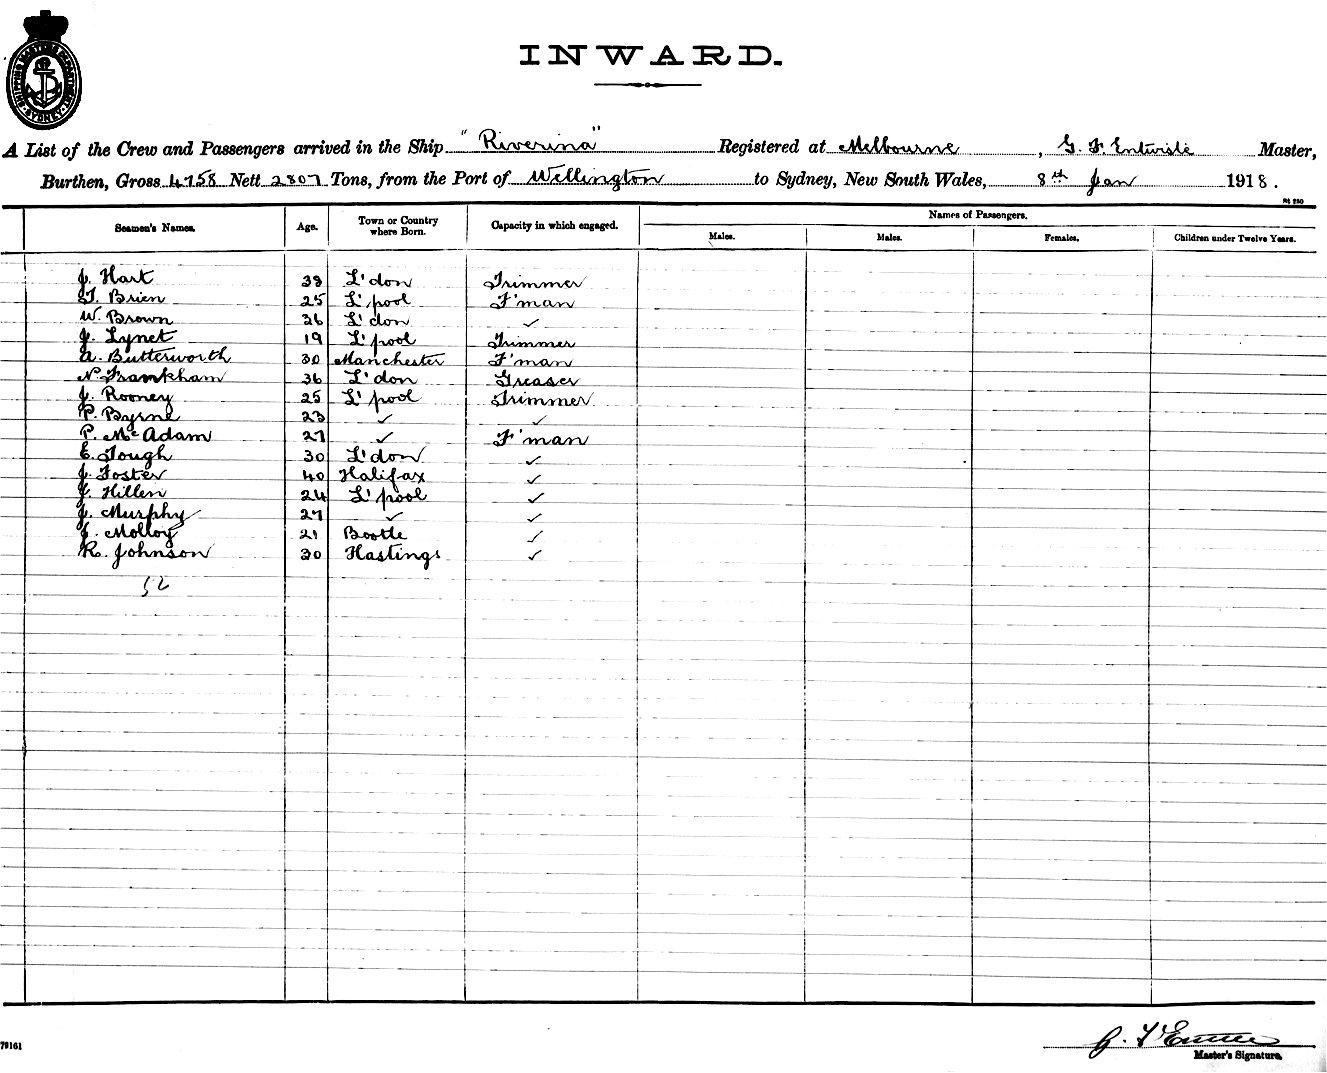 SHIPPING MASTERS DEPARTMENT SYDNEY
INWARD.
A List of the Crew and Passengers arrived in the Ship "Riverina" Registered at Melbourne, G. F. Entwisle Master,
Burthen, Gross 4758 Nett 2807 Tons, from the Port of Wellington to Sydney, New South Wales, 8th Jan 1918.
Names of Passengers.
Seamen's Names. Age. Town or Country where Born. Capacity in which engaged. Males. Males. Females. Children under Twelve Years.
J. Hart 38 L'don Trimmer
T. Brien 25 L'pool F'man
W. Brown 26 L'don ✓
J. Lynet 19 L'pool Trimmer
A. Butterworth 30 Manchester F'man
N. Frankham 36 L'don Greaser
J. Rooney 25 L'pool Trimmer
P. Byrne 23 ✓ ✓
P. McAdam 27 ✓ F'man
E. Tough 30 L'don ✓
J. Foster 40 Halifax ✓
J. Hillen 24 L'pool ✓
J. Murphy 27 ✓ ✓
J. Molloy 21 Bootle ✓
R. Johnson 30 Hastings ✓
52
79161
Master's Signature.